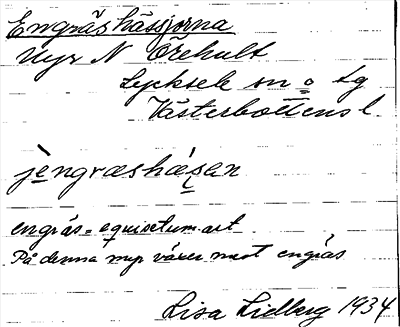 Engräshässjorna
Myr N Örehult
Lycksele sn o tg
Västerbottens l.
jèngræshásan
engräs = equisetum-art
På denna myr växer mest engräs
Lisa Lidberg 1934